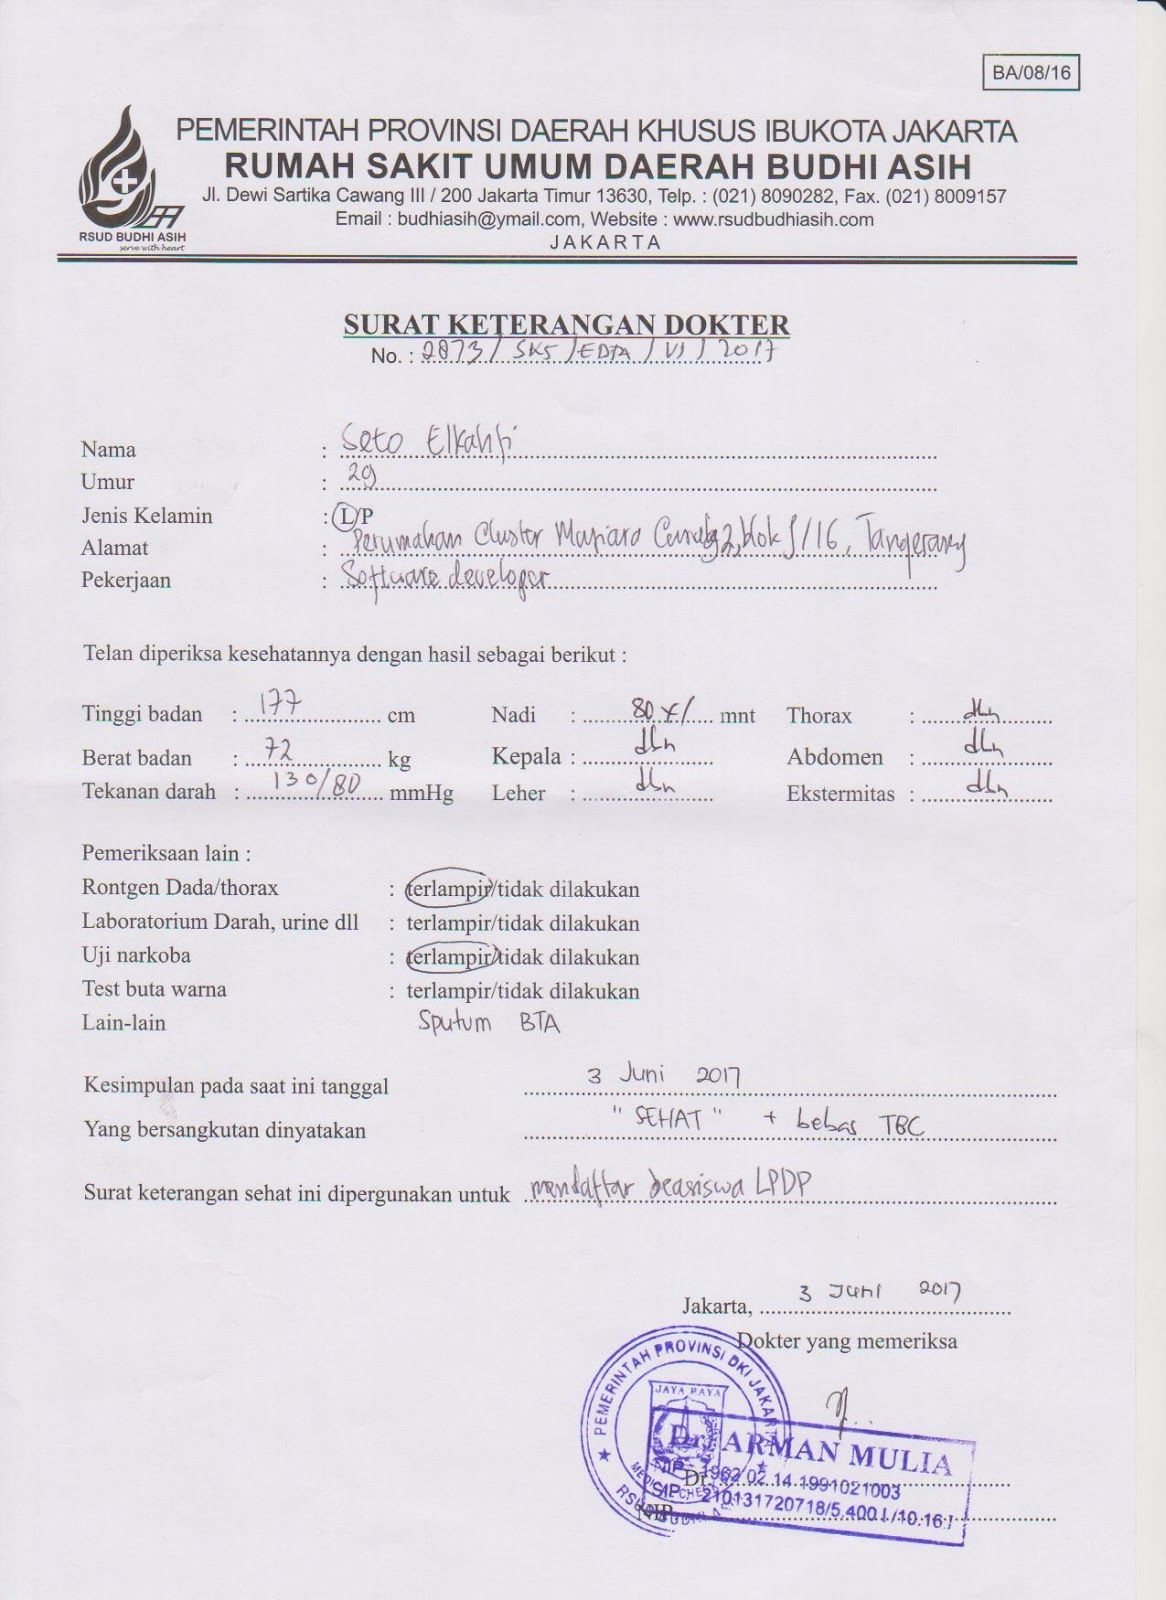 BA/08/16
PEMERINTAH PROVINSI DAERAH KHUSUS IBUKOTA JAKARTA
RUMAH SAKIT UMUM DAERAH BUDHI ASIH
Jl. Dewi Sartika Cawang III / 200 Jakarta Timur 13630, Telp. : (021) 8090282, Fax. (021) 8009157
Email : budhiasih@ymail.com, Website : www.rsudbudhiasih.com
JAKARTA
RSUD BUDHI ASIH
serve with heart
SURAT KETERANGAN DOKTER
No. : 2873 / SKS / / VI / 2017
Nama : Seto Elkahfi
Umur : 29
Jenis Kelamin : L/P
Alamat : Perumahan Cluster 2, blok /16, Tangerang
Pekerjaan : Software developer
Telan diperiksa kesehatannya dengan hasil sebagai berikut :
Tinggi badan : 177 cm Nadi : 80 x/ mnt Thorax : dbn
Berat badan : 72 kg Kepala : dbn Abdomen : dbn
Tekanan darah : 130/80 mmHg Leher : dbn Ekstermitas : dbn
Pemeriksaan lain :
Rontgen Dada/thorax : terlampir/tidak dilakukan
Laboratorium Darah, urine dll : terlampir/tidak dilakukan
Uji narkoba : terlampir/tidak dilakukan
Test buta warna : terlampir/tidak dilakukan
Lain-lain Sputum BTA
Kesimpulan pada saat ini tanggal 3 Juni 2017
Yang bersangkutan dinyatakan "SEHAT" + bebas TBC
Surat keterangan sehat ini dipergunakan untuk mendaftar beasiswa LPDP
Jakarta, 3 Juni 2017
Dokter yang memeriksa
PEMERINTAH PROVINSI DKI JAKARTA
JAYA RAYA
Dr. ARMAN MULIA
NIP. 1962 02 14 1991021003
Dr.
SIP. 2.10131720718/5.400.1./10.16.1
NIP